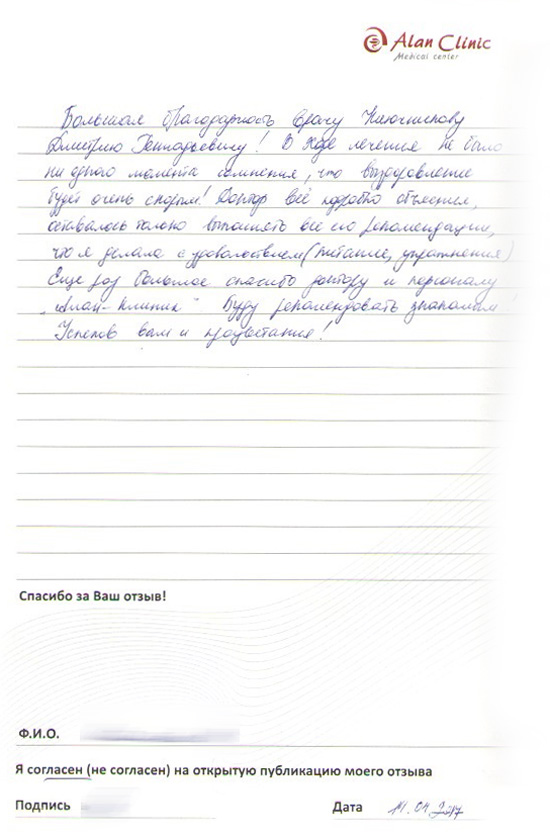 Alan Clinic
Medical center
Большая благодарность врачу Ключникову
Дмитрию Геннадьевичу! В ходе лечения не было
ни одного момента сомнения, что выздоровление
будет очень скорым! Доктор всё подробно объяснил,
оставалось только выполнять все его рекомендации,
что я делала с удовольствием (питание, упражнения)
Еще раз большое спасибо доктору и персоналу
„Алан-Клиник" Буду рекомендовать знакомым!
Успехов вам и процветания!
Спасибо за Ваш отзыв!
Ф.И.О.
Я согласен (не согласен) на открытую публикацию моего отзыва
Подпись Дата 14.04.2017